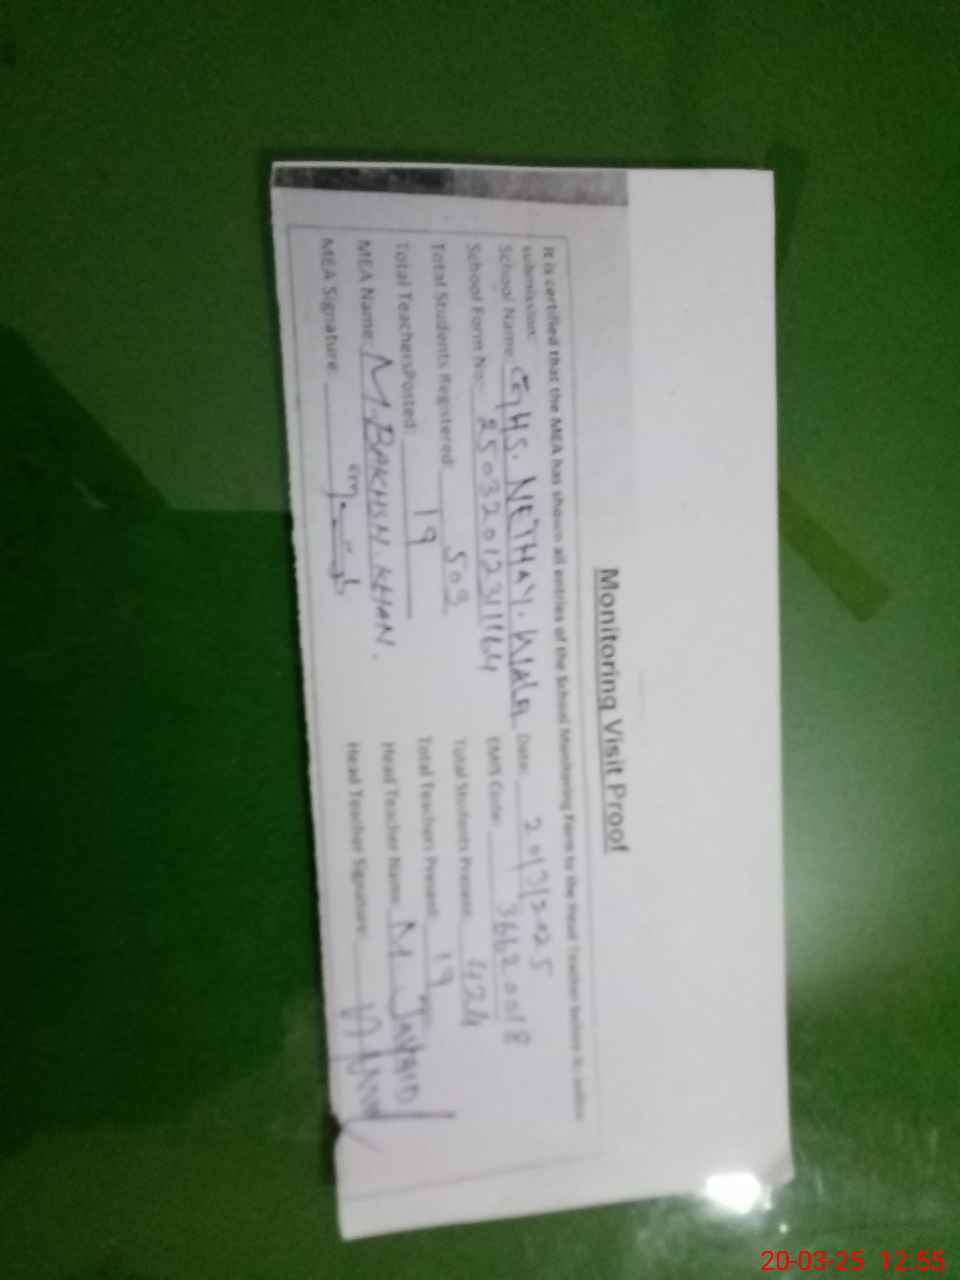 Monitoring Visit Proof
It is certified that the MEA has shown all entries of the School Monitoring Form to the Head Teacher before its online
submission.
School Name: GHS. NETHAY. WALA Date: 20/3/2025
School Form No: 2503201231164 EMIS Code: 36620018
Total Students Registered: 503 Total Students Present: 424
Total TeachersPosted: 19 Total Teachers Present: 19
MEA Name: M. BAKHSH. KHAN. Head Teacher Name: M. JAVAID
MEA Signature: Head Teacher Signature:
20-03-25 12:55